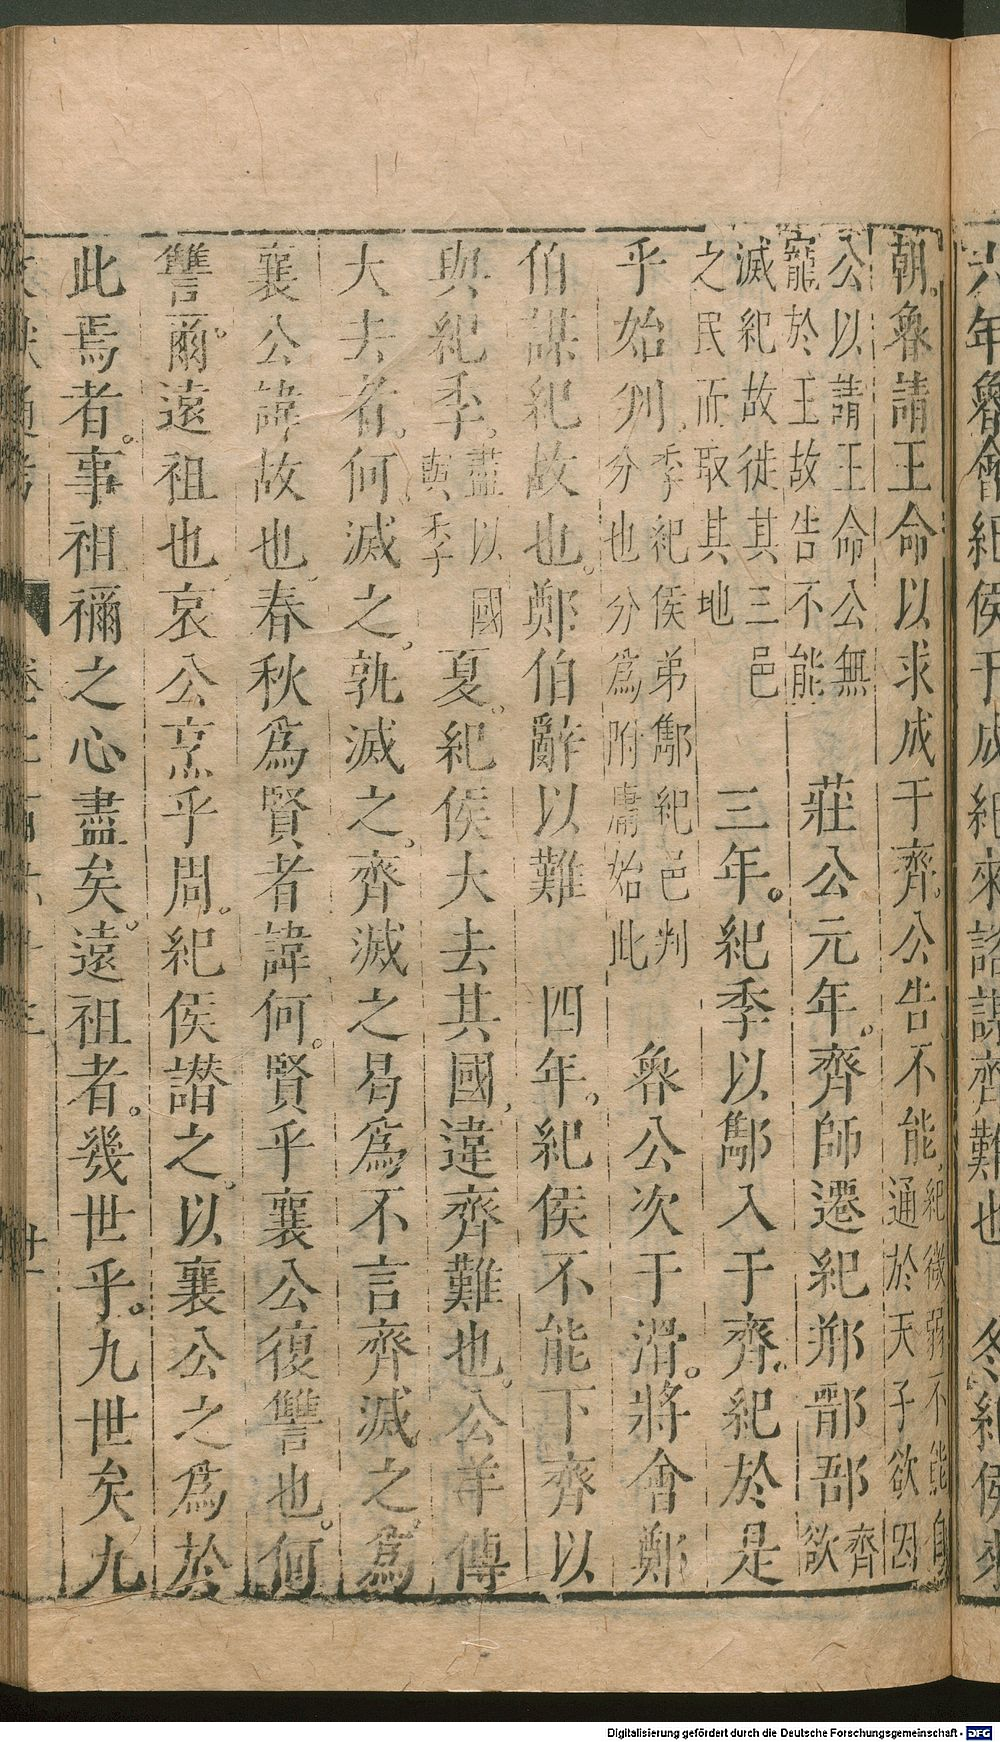 六年魯會紀侯于成紀來諮謀齊難也　冬紀侯來
朝。魯請王命以求成于齊。公告不能紀微弱不能自通於天子欲因
公以請王命公無寵於王故告不能　莊公元年。齊師遷紀郱鄑郚齊欲
滅紀故徙其三邑之民而取其地　三年。紀季以酅入于齊。紀於是
乎始判。季紀侯弟酅紀邑判分也分爲附庸始此　魯公次于滑。將會鄭
伯謀紀故也。鄭伯辭以難　四年。紀侯不能下齊以
與紀季。盡以國與季　夏。紀侯大去其國違齊難也。公羊傳
大去者。何滅之。孰滅之。齊滅之曷爲不言齊滅之。爲
襄公諱故也春秋爲賢者諱何。賢乎襄公復讐也。何
讐爾。遠祖也哀公烹乎周。紀侯譖之。以襄公之爲於
此焉者。事祖禰之心盡矣。遠祖者。幾世乎。九世矣九
Digitalisierung gefördert durch die Deutsche Forschungsgemeinschaft - DFG